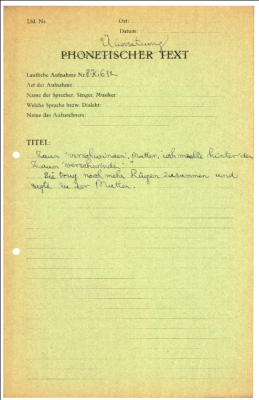 Lfd. Nr.
Ort:
Datum:
Übersetzung
PHONETISCHER TEXT
Lautliche Aufnahme Nr.
Art der Aufnahme:
Name der Sprecher, Sänger, Musiker:
Welche Sprache bzw. Dialekt:
Name des Aufnehmers:
TITEL:
Zaun "verschwinden". Mutter, ich möchte hinter den
Zaun "verschwinde
Sie trug noch mehr Lügen zusammen und
sagte zu der Mutter.